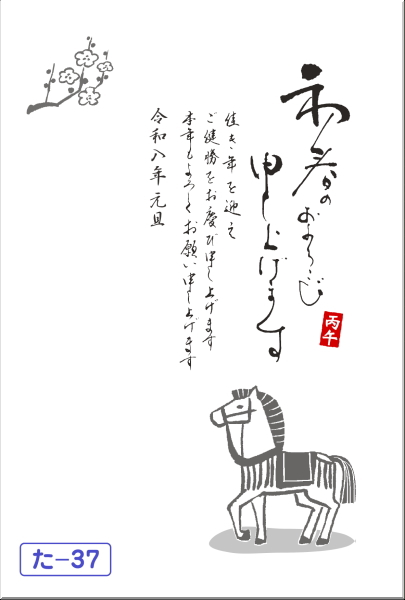 初春のおよろこび
申し上げます
丙午
佳き年を迎え
ご健勝をお慶び申し上げます
本年もよろしくお願い申し上げます
令和八年元旦
た-37